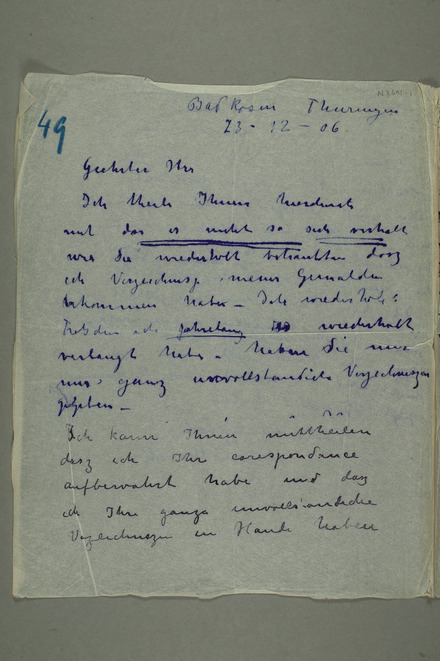 49
Bad Kosen Thuringen
23-12-06.
Geehrter Her
Ich theile Ihnen hierdurch
mit das es nicht so sich verhalt
wie Sie wiederholt behaubten dasz
ich Verzeichnisse meiner Gemalden
bekommen habe - Ich wiederhole:
Trotzdem ich jahrelang wiederholt
verlangt habe - haben Sie mir
nur ganz unvollstandiche Verzeichniszen
gegeben -
Ich kann Ihnen mittheilen
dasz ich Ihr corespondance
aufbewahrt habe und dasz
ich Ihre ganze unvollstandiche
Verzeichniszen in Hande haben